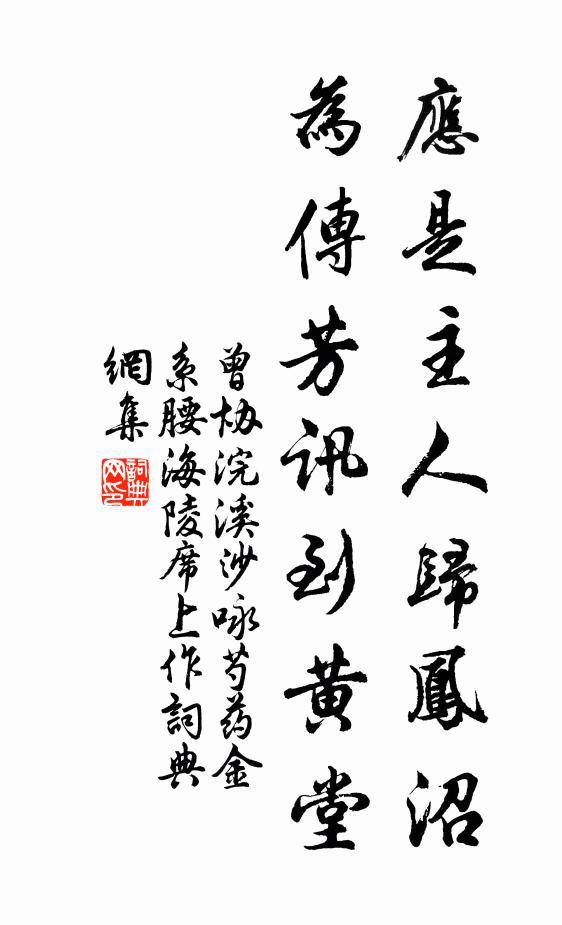 應是主人歸鳳沼
為傳芳訊到黄堂
曾協浣溪沙咏芍药金
系腰海陵席上作詞典
網集
詞典
网印